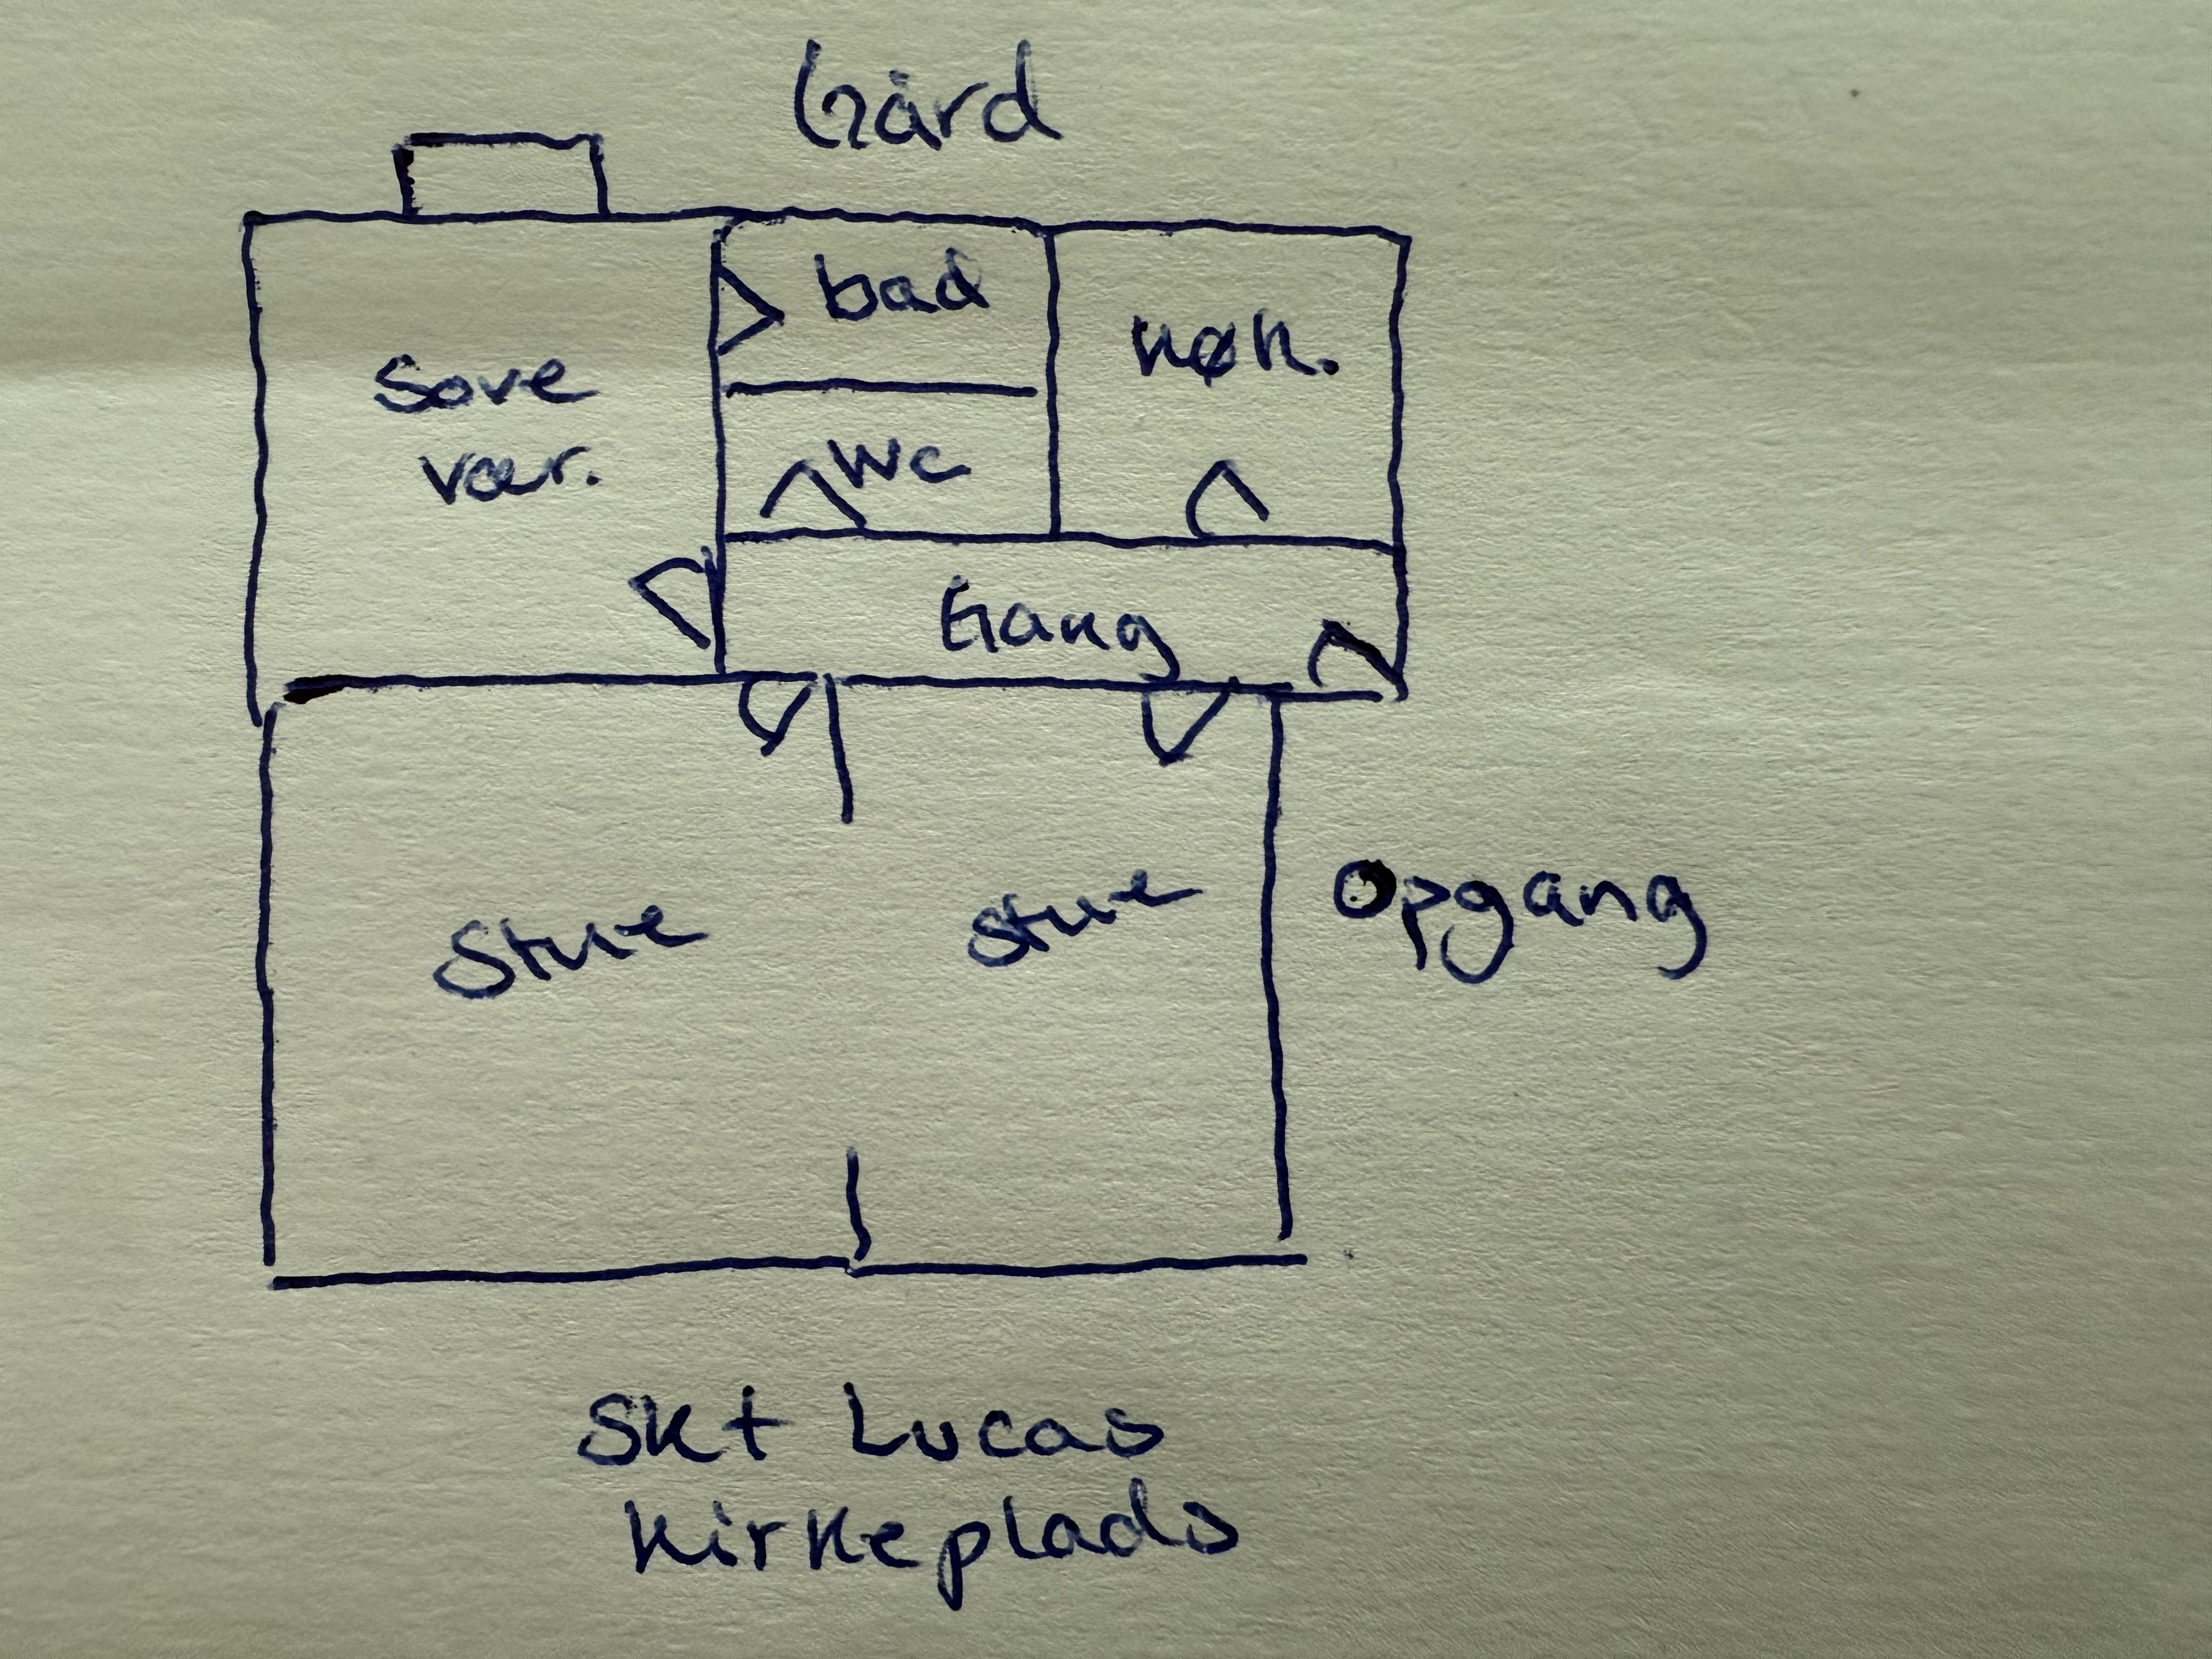 Gård
bad
køk.
Sove
vær.
WC
Gang
Stue
Stue
Opgang
Skt Lucas
Kirkeplads